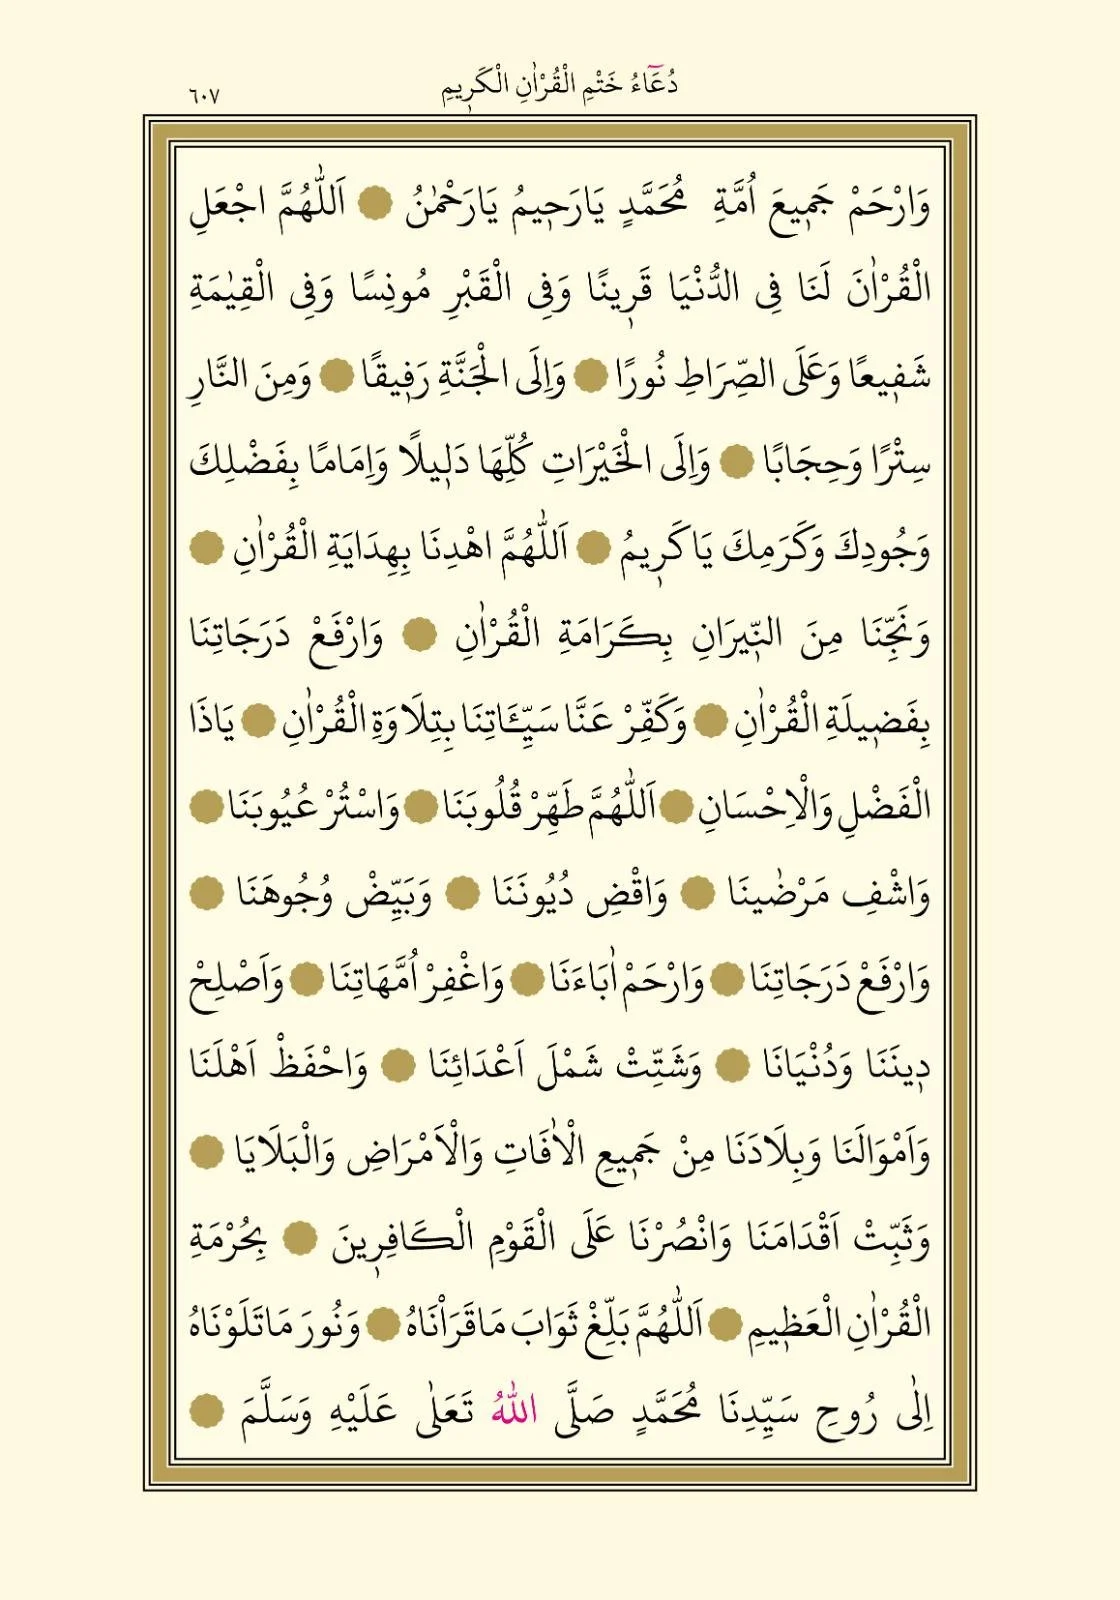 دُعَٓاءُ خَتْمِ الْقُرْاٰنِ الْكَر۪يمِ
٦٠٧
وَارْحَمْ جَم۪يعَ اُمَّةِ مُحَمَّدٍ يَارَح۪يمُ يَارَحْمٰنُ ۞ اَللّٰهُمَّ اجْعَلِ
الْقُرْاٰنَ لَنَا فِى الدُّنْيَا قَر۪ينًا وَفِى الْقَبْرِ مُونِسًا وَفِى الْقِيٰمَةِ
شَف۪يعًا وَعَلَى الصِّرَاطِ نُورًا ۞ وَاِلَى الْجَنَّةِ رَف۪يقًا ۞ وَمِنَ النَّارِ
سِتْرًا وَحِجَابًا ۞ وَاِلَى الْخَيْرَاتِ كُلِّهَا دَل۪يلًا وَاِمَامًا بِفَضْلِكَ
وَجُودِكَ وَكَرَمِكَ يَاكَر۪يمُ ۞ اَللّٰهُمَّ اهْدِنَا بِهِدَايَةِ الْقُرْاٰنِ ۞
وَنَجِّنَا مِنَ النّ۪يرَانِ بِكَرَامَةِ الْقُرْاٰنِ ۞ وَارْفَعْ دَرَجَاتِنَا
بِفَض۪يلَةِ الْقُرْاٰنِ ۞ وَكَفِّرْ عَنَّا سَيِّـَٔاتِنَا بِتِلَاوَةِ الْقُرْاٰنِ ۞ يَاذَا
الْفَضْلِ وَالْاِحْسَانِ ۞ اَللّٰهُمَّ طَهِّرْ قُلُوبَنَا ۞ وَاسْتُرْ عُيُوبَنَا ۞
وَاشْفِ مَرْضٰينَا ۞ وَاقْضِ دُيُونَنَا ۞ وَبَيِّضْ وُجُوهَنَا ۞
وَارْفَعْ دَرَجَاتِنَا ۞ وَارْحَمْ اٰبَاءَنَا ۞ وَاغْفِرْ اُمَّهَاتِنَا ۞ وَاَصْلِحْ
د۪ينَنَا وَدُنْيَانَا ۞ وَشَتِّتْ شَمْلَ اَعْدَائِنَا ۞ وَاحْفَظْ اَهْلَنَا
وَاَمْوَالَنَا وَبِلَادَنَا مِنْ جَم۪يعِ الْاٰفَاتِ وَالْاَمْرَاضِ وَالْبَلَايَا ۞
وَثَبِّتْ اَقْدَامَنَا وَانْصُرْنَا عَلَى الْقَوْمِ الْكَافِر۪ينَ ۞ بِحُرْمَةِ
الْقُرْاٰنِ الْعَظ۪يمِ ۞ اَللّٰهُمَّ بَلِّغْ ثَوَابَ مَاقَرَاْنَاهُ ۞ وَنُورَ مَاتَلَوْنَاهُ
اِلٰى رُوحِ سَيِّدِنَا مُحَمَّدٍ صَلَّى اللّٰهُ تَعَلٰى عَلَيْهِ وَسَلَّمَ ۞